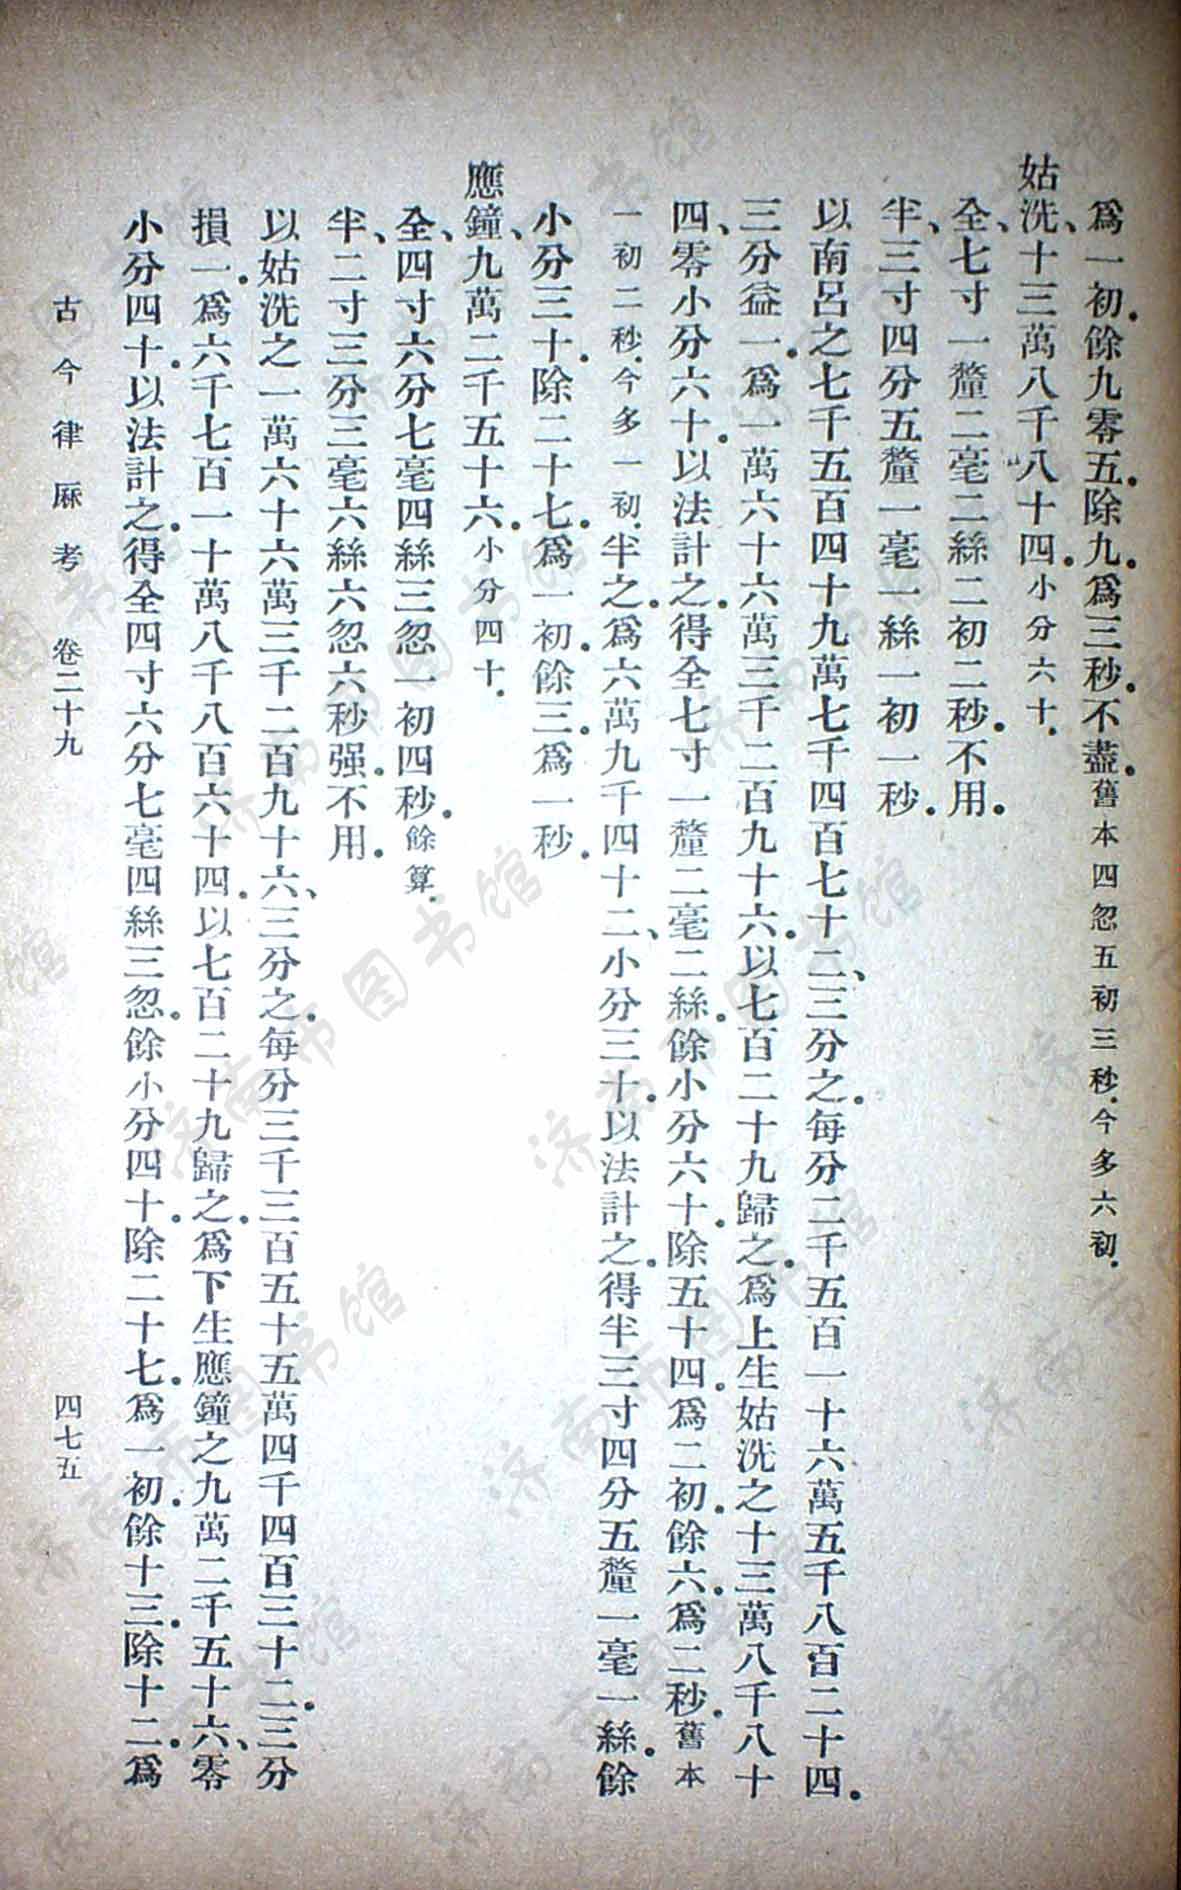 爲一初．餘九零五．除九．爲三秒．不盡．舊本四忽五初三秒．今多六初．
姑洗、十三萬八千八十四．小分六十．
全、七寸一釐二毫二絲二初二秒．不用．
半、三寸四分五釐一毫一絲一初一秒．
以南呂之七千五百四十九萬七千四百七十二、三分之．每分二千五百一十六萬五千八百二十四．
三分益一．爲一萬六十六萬三千二百九十六．以七百二十九歸之．爲上生姑洗之十三萬八千八十
四、零小分六十．以法計之．得全七寸一釐二毫二絲．餘小分六十．除五十四．爲二初．餘六．爲二秒．舊本
一初二秒．今多一初．半之．爲六萬九千四十二、小分三十．以法計之．得半三寸四分五釐一毫一絲．餘
小分三十．除二十七．爲一初．餘三．爲一秒．
應鐘、九萬二千五十六．小分四十．
全、四寸六分七毫四絲三忽一初四秒．餘算．
半、二寸三分三毫六絲六忽六秒强．不用．
以姑洗之一萬六十六萬三千二百九十六、三分之．每分三千三百五十五萬四千四百三十二．三分
損一．爲六千七百一十萬八千八百六十四．以七百二十九歸之．爲下生應鐘之九萬二千五十六、零
小分四十．以法計之．得全四寸六分七毫四絲三忽．餘小分四十．除二十七．爲一初．餘十三．除十二．爲
古今律厤考 卷二十九 四七五